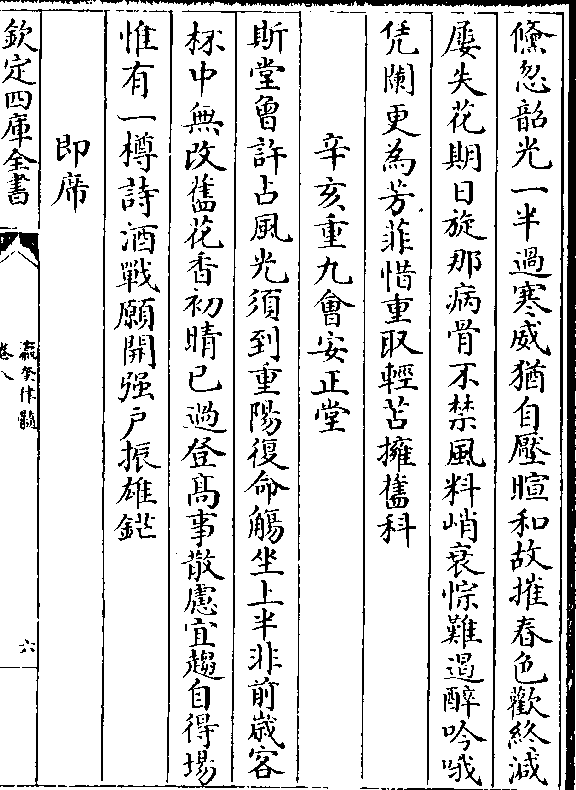 儵忽韶光一半過寒威猶自壓暄和故摧春色歡終減
屢失花期日旋那病骨不禁風料峭衰悰難遏醉吟哦
凭闌更為芳菲惜重取輕苫擁舊科
辛亥重九會安正堂
斯堂曾許占風光須到重陽復命觴坐上半非前歳客
杯中無改舊花香初晴已過登髙事散慮宜趨自得場
惟有一樽詩酒戰願開强戸振雄鋩
即席
欽定四庫全書
卷八
六